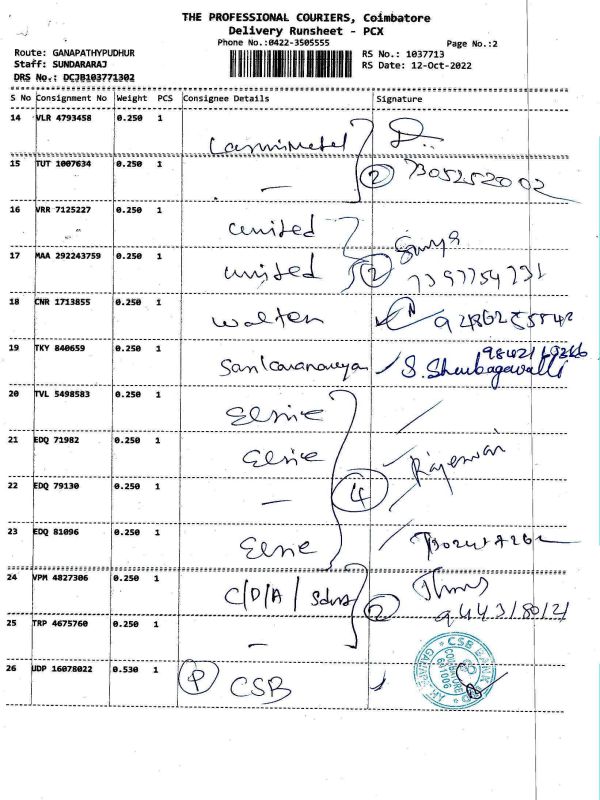 THE PROFESSIONAL COURIERS, Coimbatore
Delivery Runsheet - PCX
Phone No.:0422-3505555
Page No.:2
Route: GANAPATHYPUDHUR
RS No.: 1037713
Staff: SUNDARARAJ
RS Date: 12-Oct-2022
DRS No.: DCJB103771302
S No Consignment No Weight PCS Consignee Details Signature
14 VLR 4793458 0.250 1
15 TUT 1007634 0.250 1 — 2 7305252002
16 VRR 7125227 0.250 1 united
17 MAA 292243759 0.250 1 united 2 Surya
7397754731
18 CNR 1713855 0.250 1 walter
19 TKY 840659 0.250 1 Sankaranarayan S. Shenbagavalli
20 TVL 5498583 0.250 1 Elsie
21 EDQ 71982 0.250 1 Elsie
22 EDQ 79130 0.250 1 — 4
23 EDQ 81096 0.250 1 Elsie
24 VPM 4827306 0.250 1 C/D/A/ 2
9443180121
25 TRP 4675760 0.250 1 —
26 UDP 16078022 0.530 1 P CSB
CSB BANK
COIMBATORE
641006